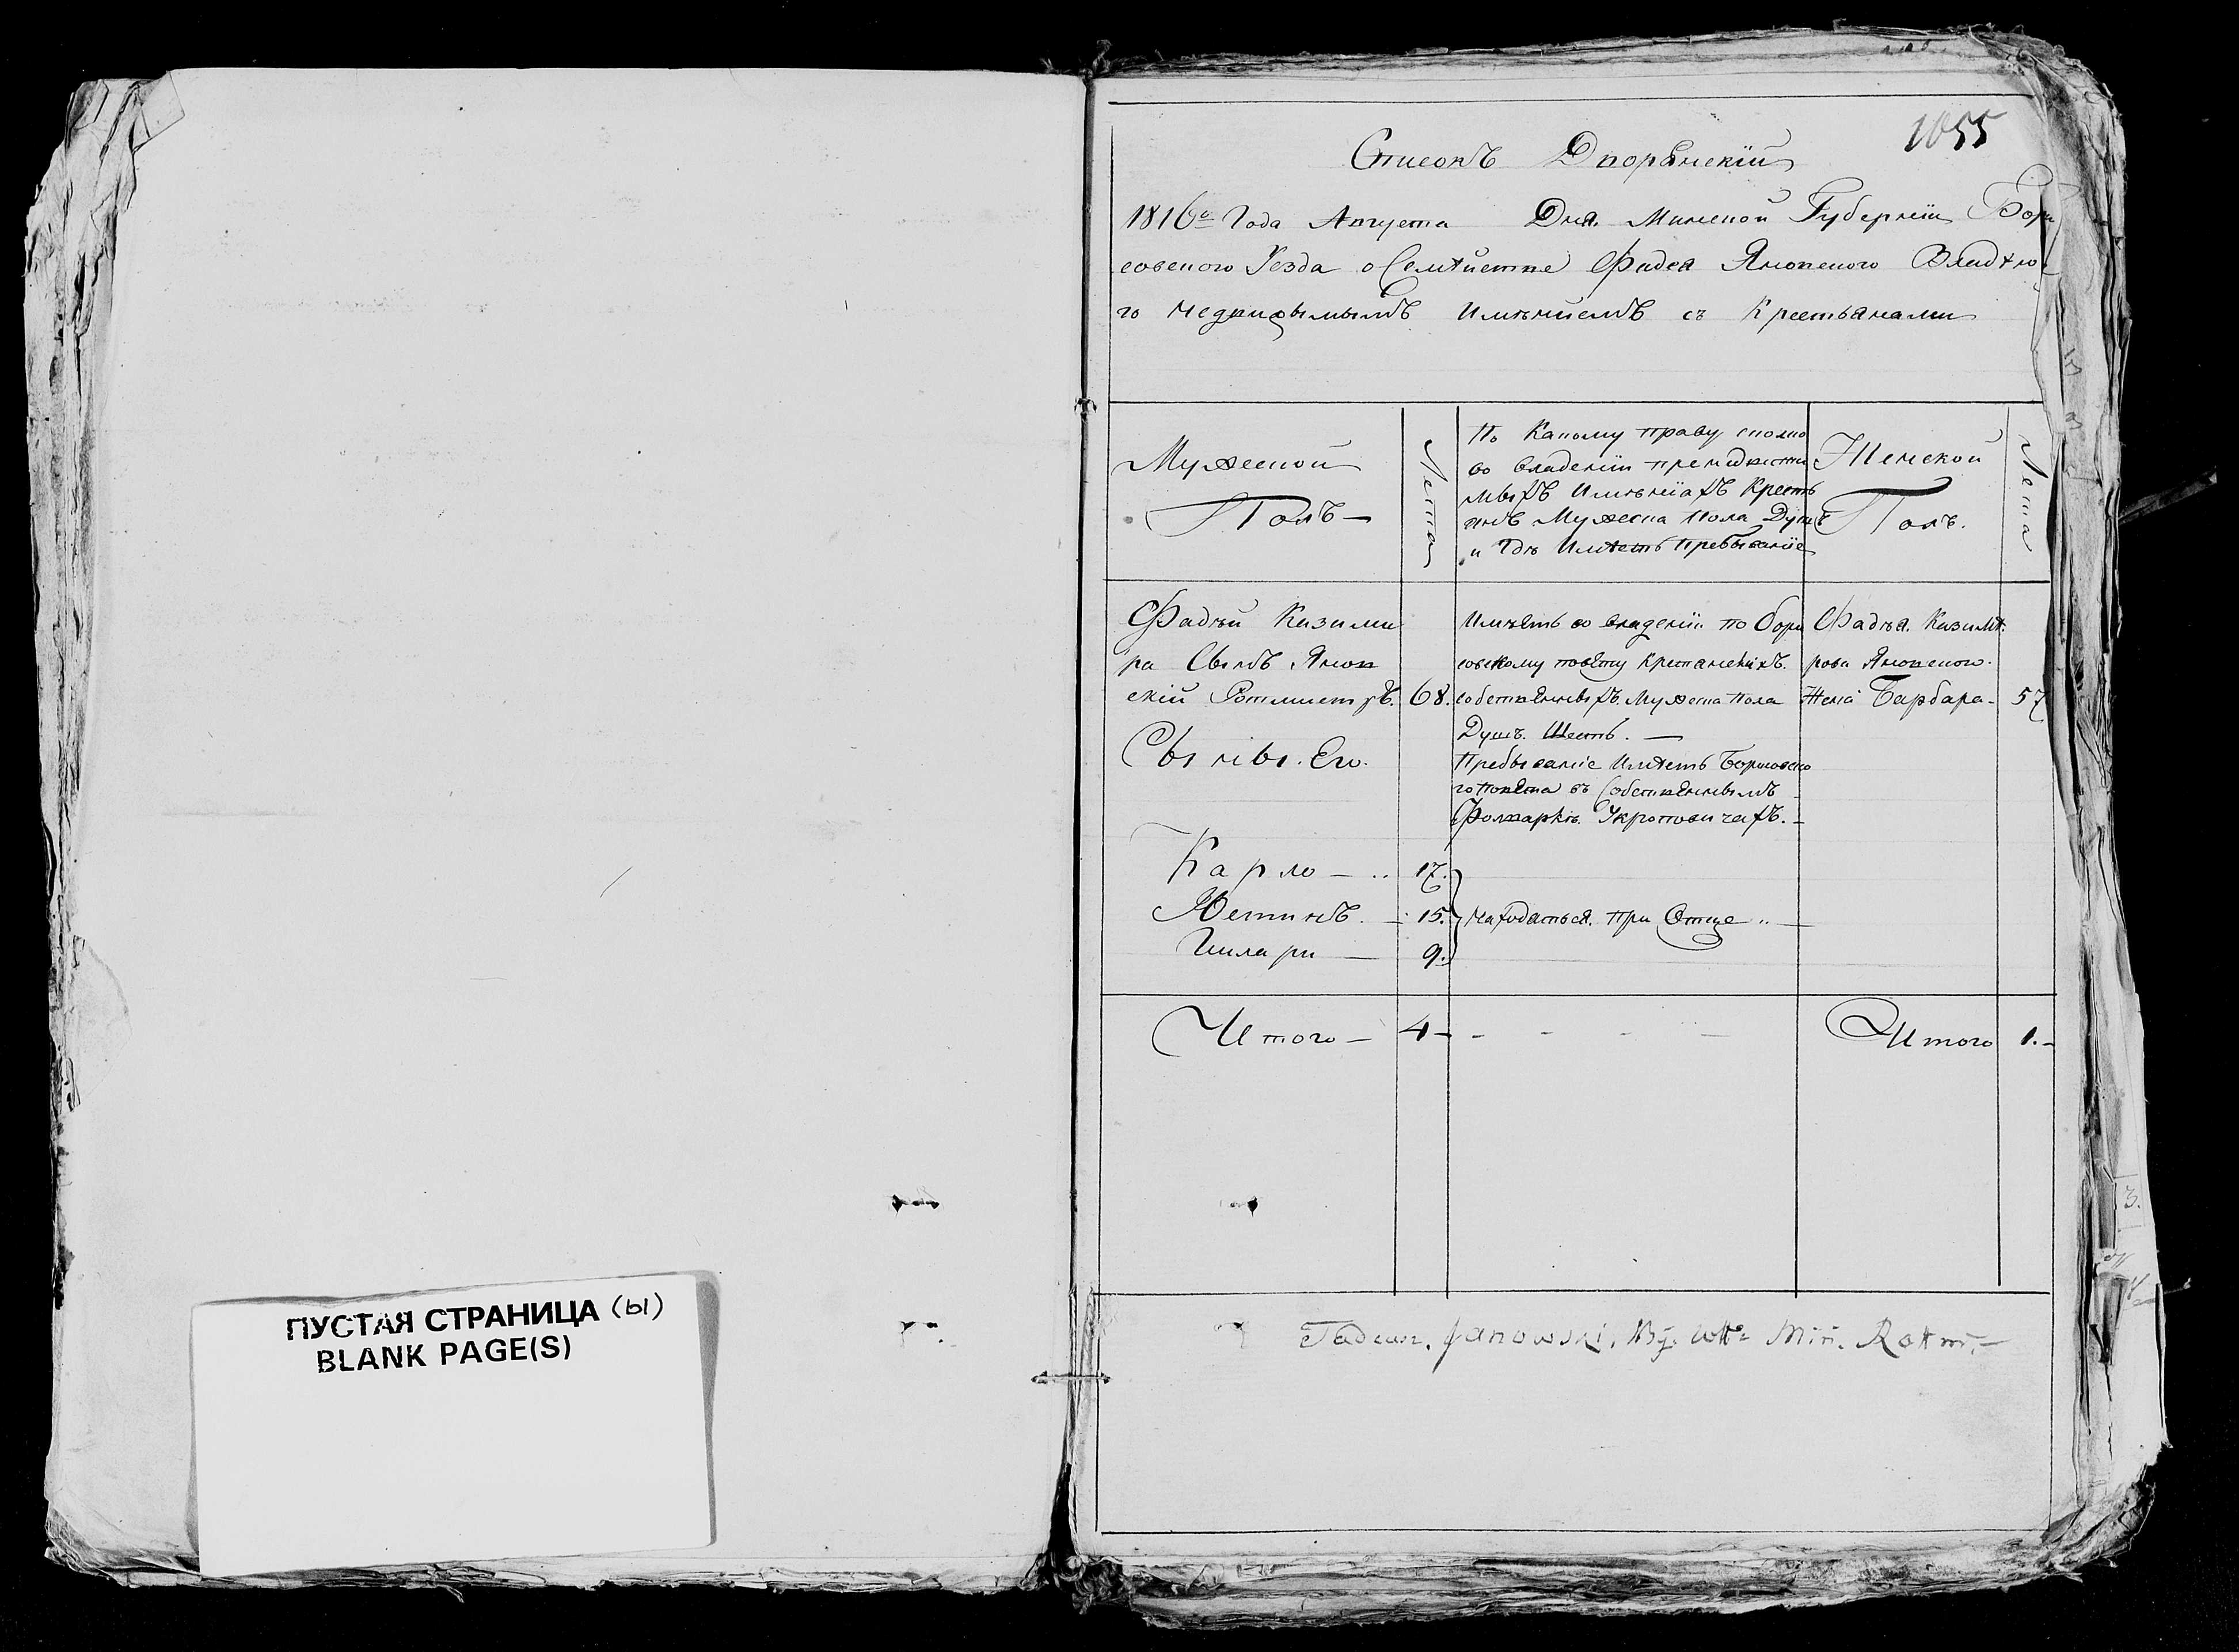 1055
Списокъ Дворянскій
1816го Года Августа Дня. Минской Губерніи Бори
совского Уезда о Семѣйстве Фадея Яновского Владѣю
го недвижымымъ имѣниемъ съ Крестьянами
Мужеской
Полъ —
Лета
По какому праву сколко
во владеніи
мыхъ имѣніяхъ Кресть
янъ Мужеска пола Душъ
и гдѣ имѣетъ пребываніе
Женской
Полъ.
Лета
Фадѣй Казими
ра Сынъ Янов
скій Ротмистръ. 68.
Сыны. Его.
Имѣетъ во владеніи по Бори
совскому повѣту крестянскихъ.
собственныхъ. Мужеска пола
Душъ. Шесть. —
Пребываніе имѣетъ Борисовско
го Повѣта въ Собственнымъ
Фолваркѣ Укроповичахъ. —
Фадѣя. Казимѣ.
рова Яновского.
Жена Барбара — 57
Карло — .. 17.
Юстинъ. — 15. находаться. при Отце .. —
Гиляри — 9.
Итого — 4 — - - - — Итого 1. —
Tadeusz. Janowski. Min. Rottm. —
3.
ПУСТАЯ СТРАНИЦА (ы)
BLANK PAGE(S)